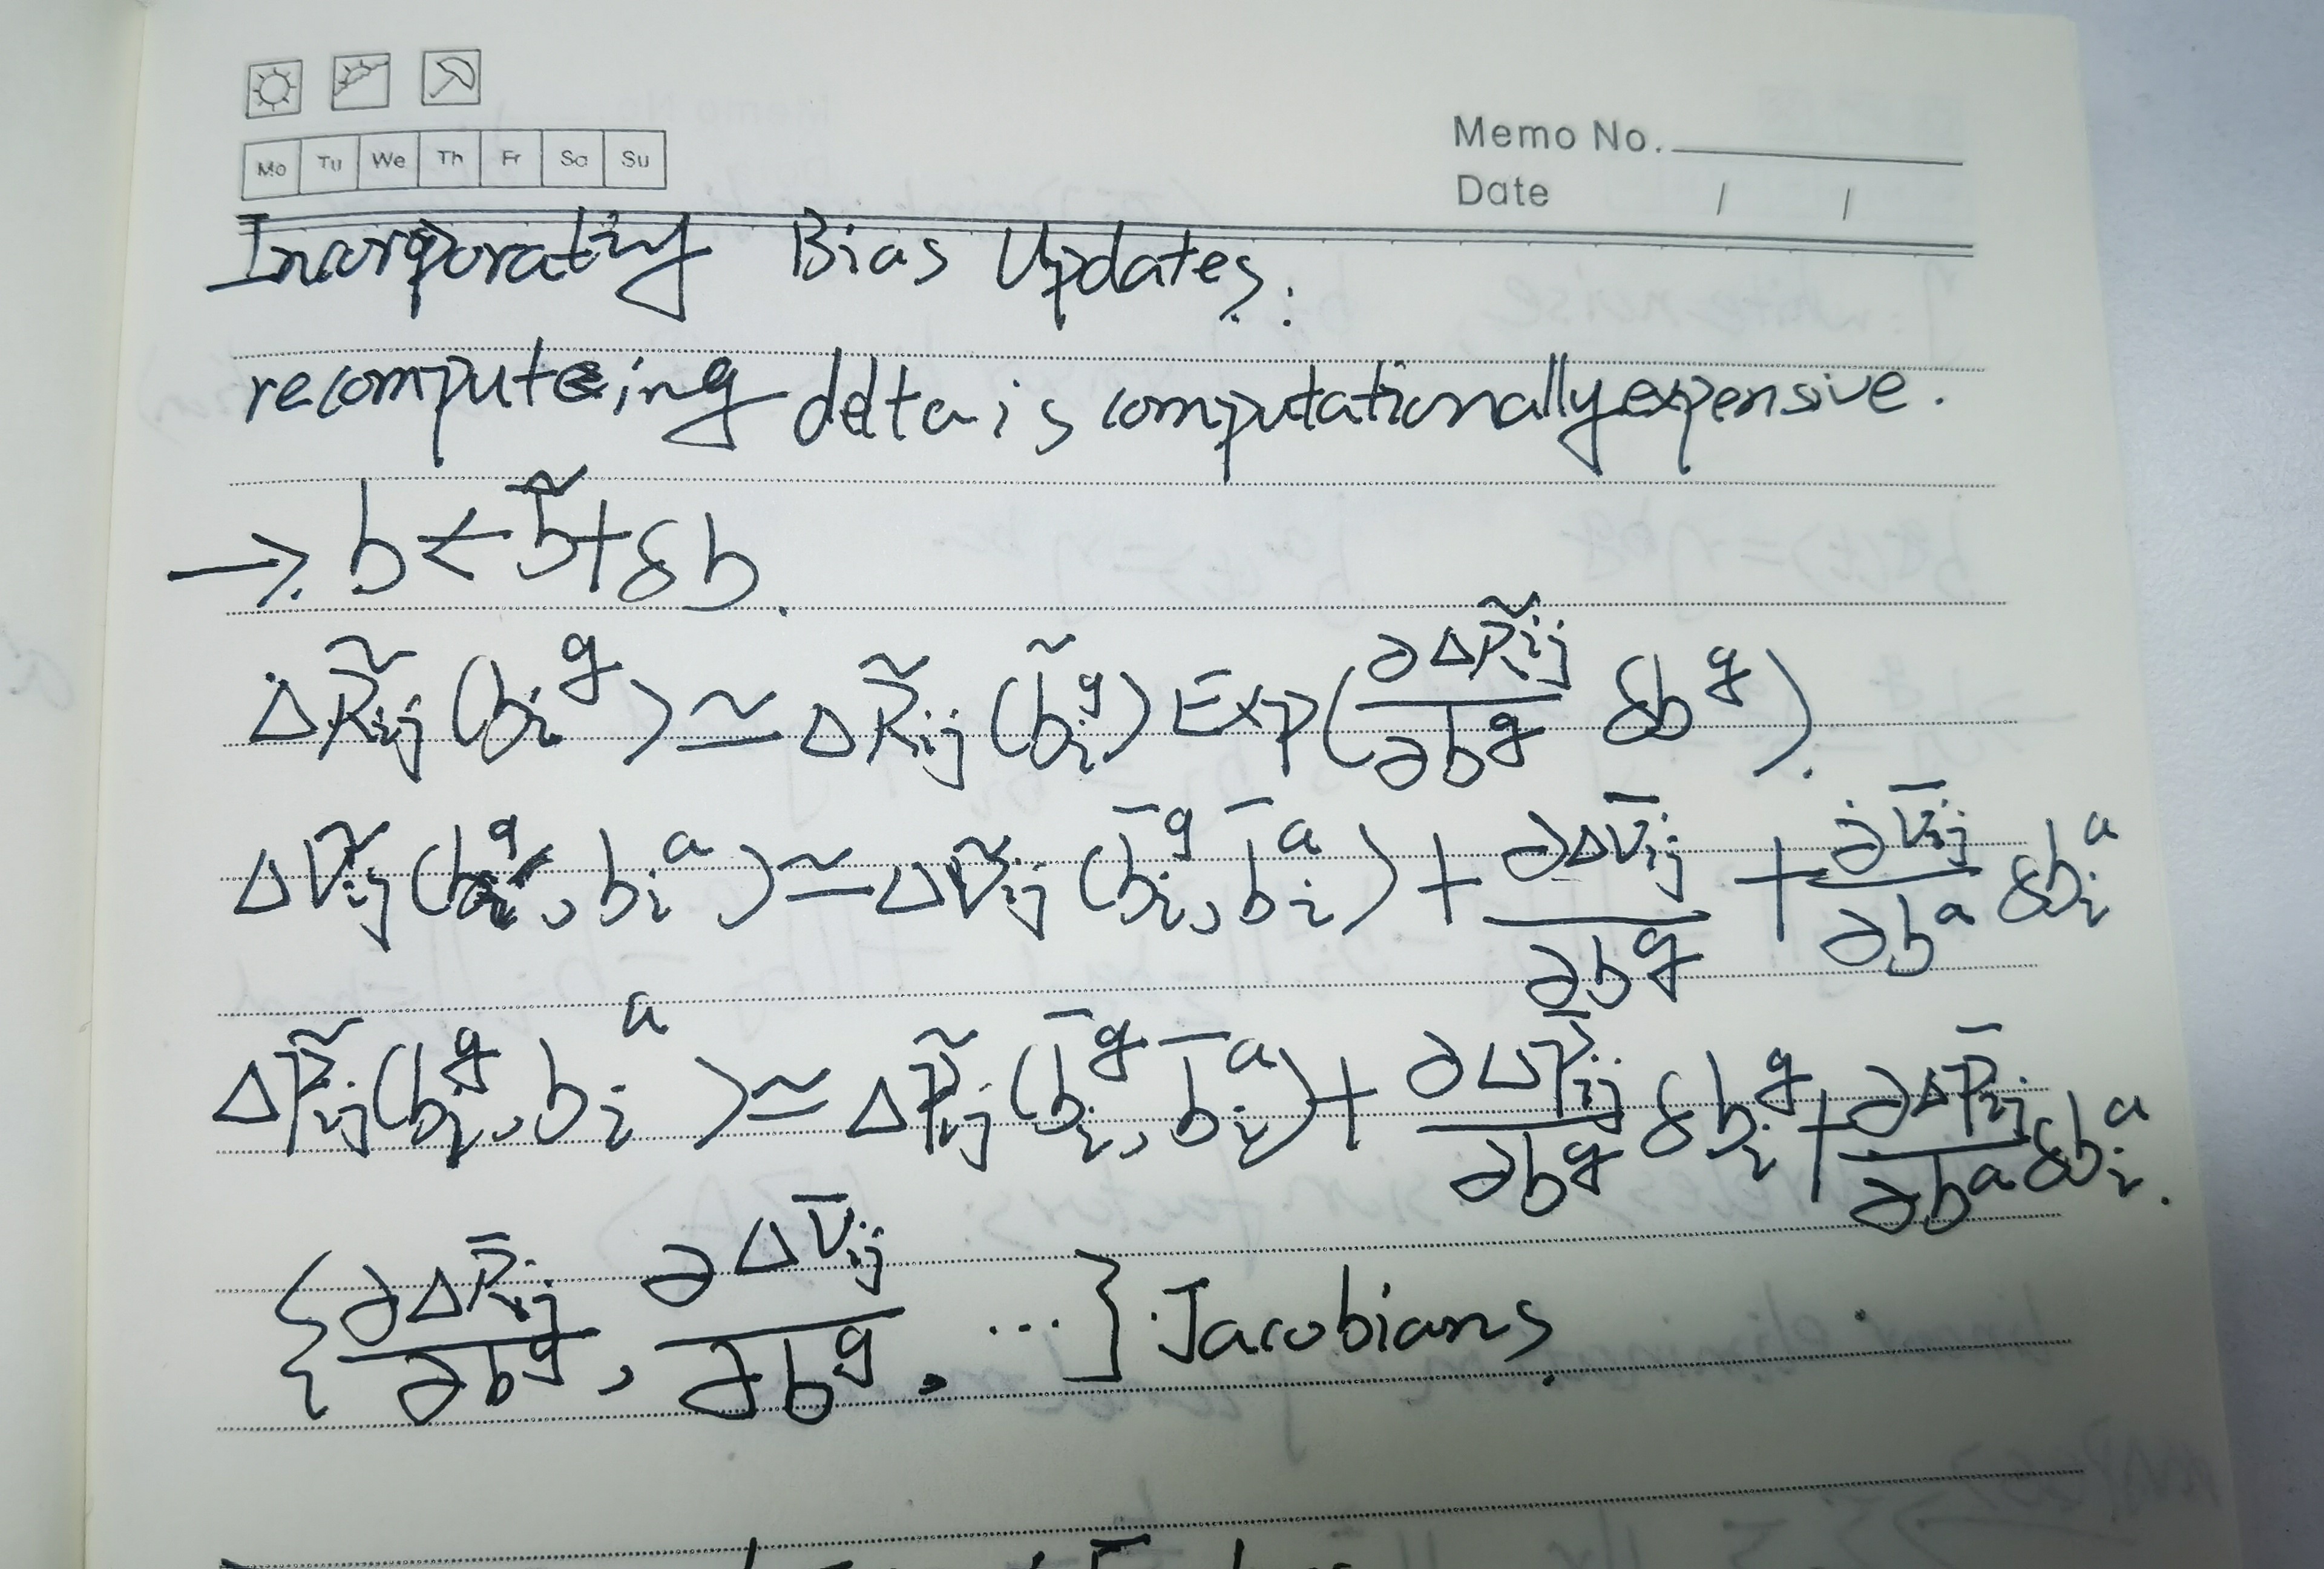 Mo Tu We Th Fr Sa Su
Memo No.
Date / /
Incorporating Bias Updates:
recomputeing delta is computationally expensive.
→. b ← b̃ + δb.
ΔR̃ij (bi^g) ≃ ΔR̃ij (b̃i^g) Exp(∂ΔR̃ij/∂b^g δb^g).
Δṽij (bi^g, bi^a) ≃ Δṽij (b̄i^g, b̄i^a) + ∂Δv̄ij/∂b^g + ∂v̄ij/∂b^a δbi^a
Δp̃ij (bi^g, bi^a) ≃ Δp̃ij (b̄i^g, b̄i^a) + ∂Δp̄ij/∂b^g δbi^g + ∂Δp̄ij/∂b^a δbi^a.
{∂ΔR̄ij/∂b^g, ∂Δv̄ij/∂b^g, ...} : Jacobians.